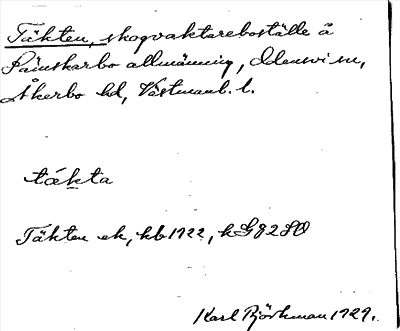 Täkten, skogvaktareboställe å
allmänning, Odensvi sn,
Åkerbo hd, Västmanl. l.
täkta
Täkten ek, kb 1922, k G82SO
Karl Björkman 1929.